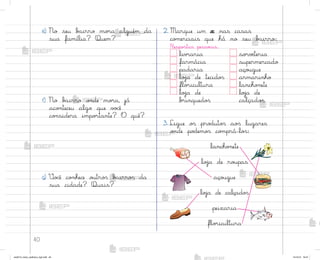 b) No seu bairro mora alguém da
sua família? Quem?
c) No bairro onde mora, já
aconteceu algo que você
considera importante? O quê?
d) Você conhece outros bairros da
sua cidade? Quais?
10
2. Marque um x nas casas
comerciais que há no seu bairro:
Respostas pessoais.
livraria
farmácia
padaria
loja de tecidos
floricultura
loja de
brinquedos
sorveteria
supermercado
açougue
armarinho
lanchonete
loja de
calçados
3. Ligue os produtos aos lugares
onde podemos comprá-los:
lanchonete
loja de roupas
açougue
loja de calçados
peixaria
floricultura